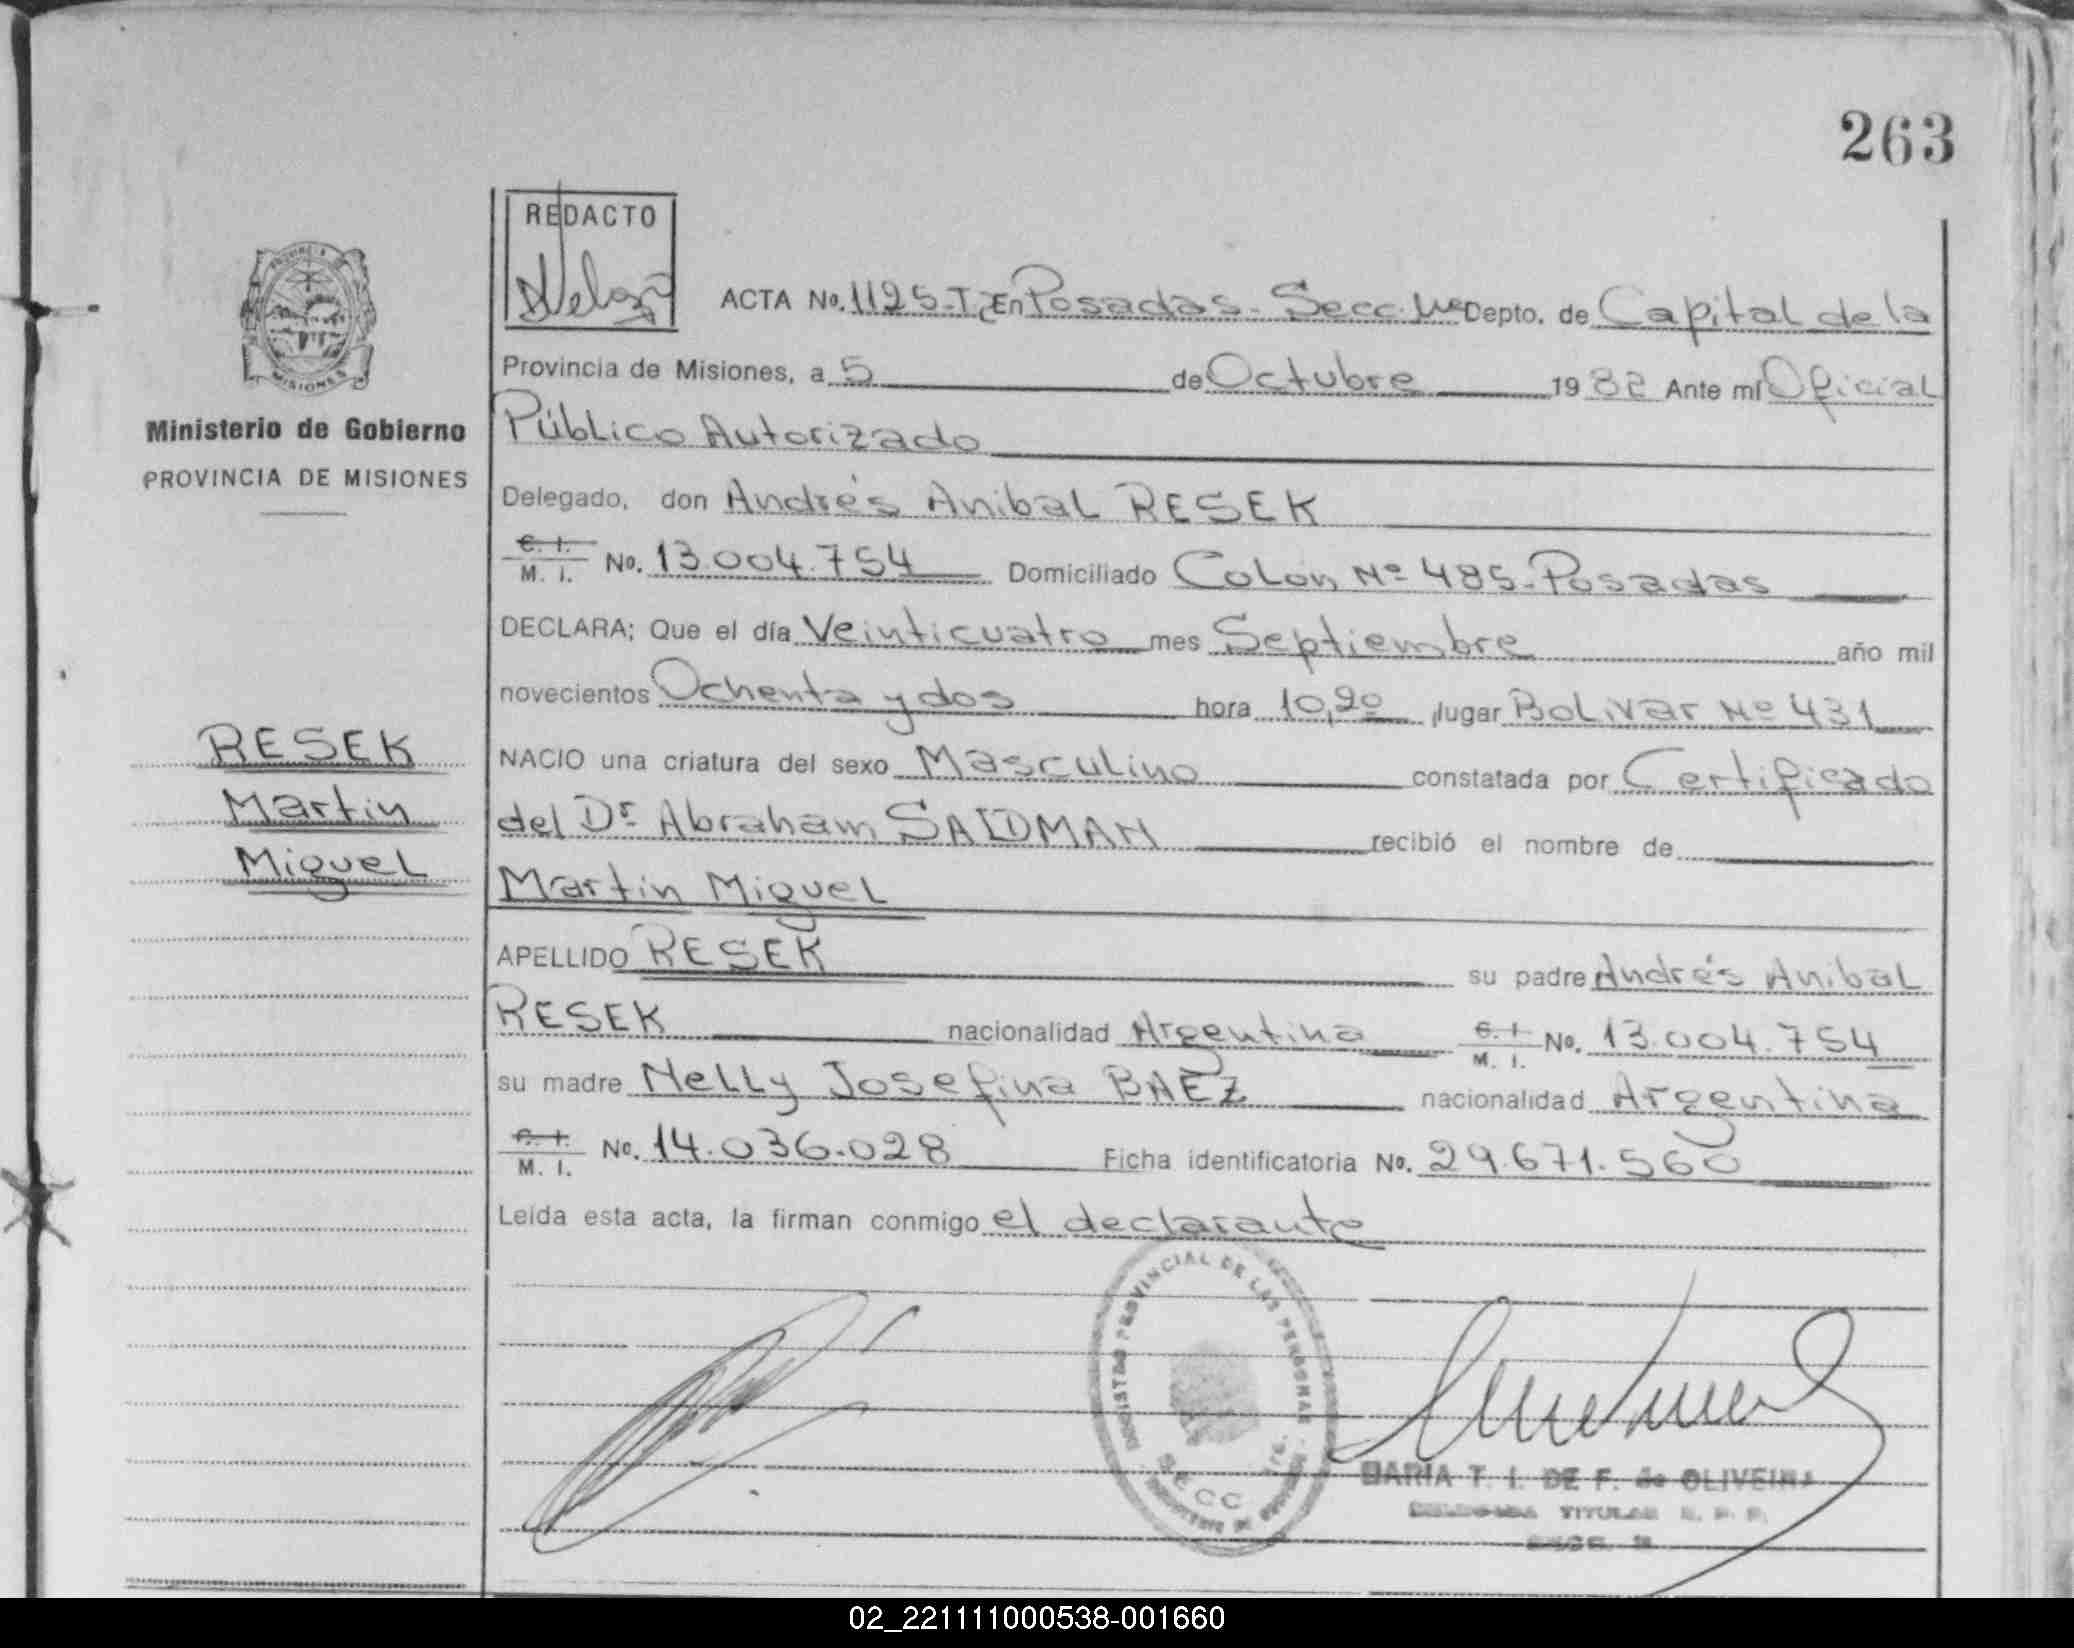 263
REDACTO
ACTA No. 1125-T.C En Posadas - Secc. 1ra Depto. de Capital de la
Provincia de Misiones, a 5 de Octubre 1982 Ante mí Oficial
Público Autorizado
Ministerio de Gobierno
PROVINCIA DE MISIONES
Delegado, don Andrés Anibal RESEK
C. I. M. I. No. 13.004.754 Domiciliado Colon Nº 485-Posadas
DECLARA; Que el día Veinticuatro mes Septiembre año mil
novecientos Ochenta y dos hora 10,20 ,lugar Bolivar Nº 431
NACIO una criatura del sexo Masculino constatada por Certificado
del Dr Abraham SAIDMAN recibió el nombre de
Martin Miguel
RESEK
Martin
Miguel
APELLIDO RESEK su padre Andrés Anibal
RESEK nacionalidad Argentina C. I. M. I. No. 13.004.754
su madre Nelly Josefina BAEZ nacionalidad Argentina
C. I. M. I. No. 14.036.028 Ficha identificatoria No. 29.671.560
Leida esta acta, la firman conmigo el declarante
REGISTRO PROVINCIAL DE LAS PERSONAS
SECC
MARIA T. I. DE F. de OLIVEIRA
DELEGADA TITULAR R. P. P.
02_221111000538-001660